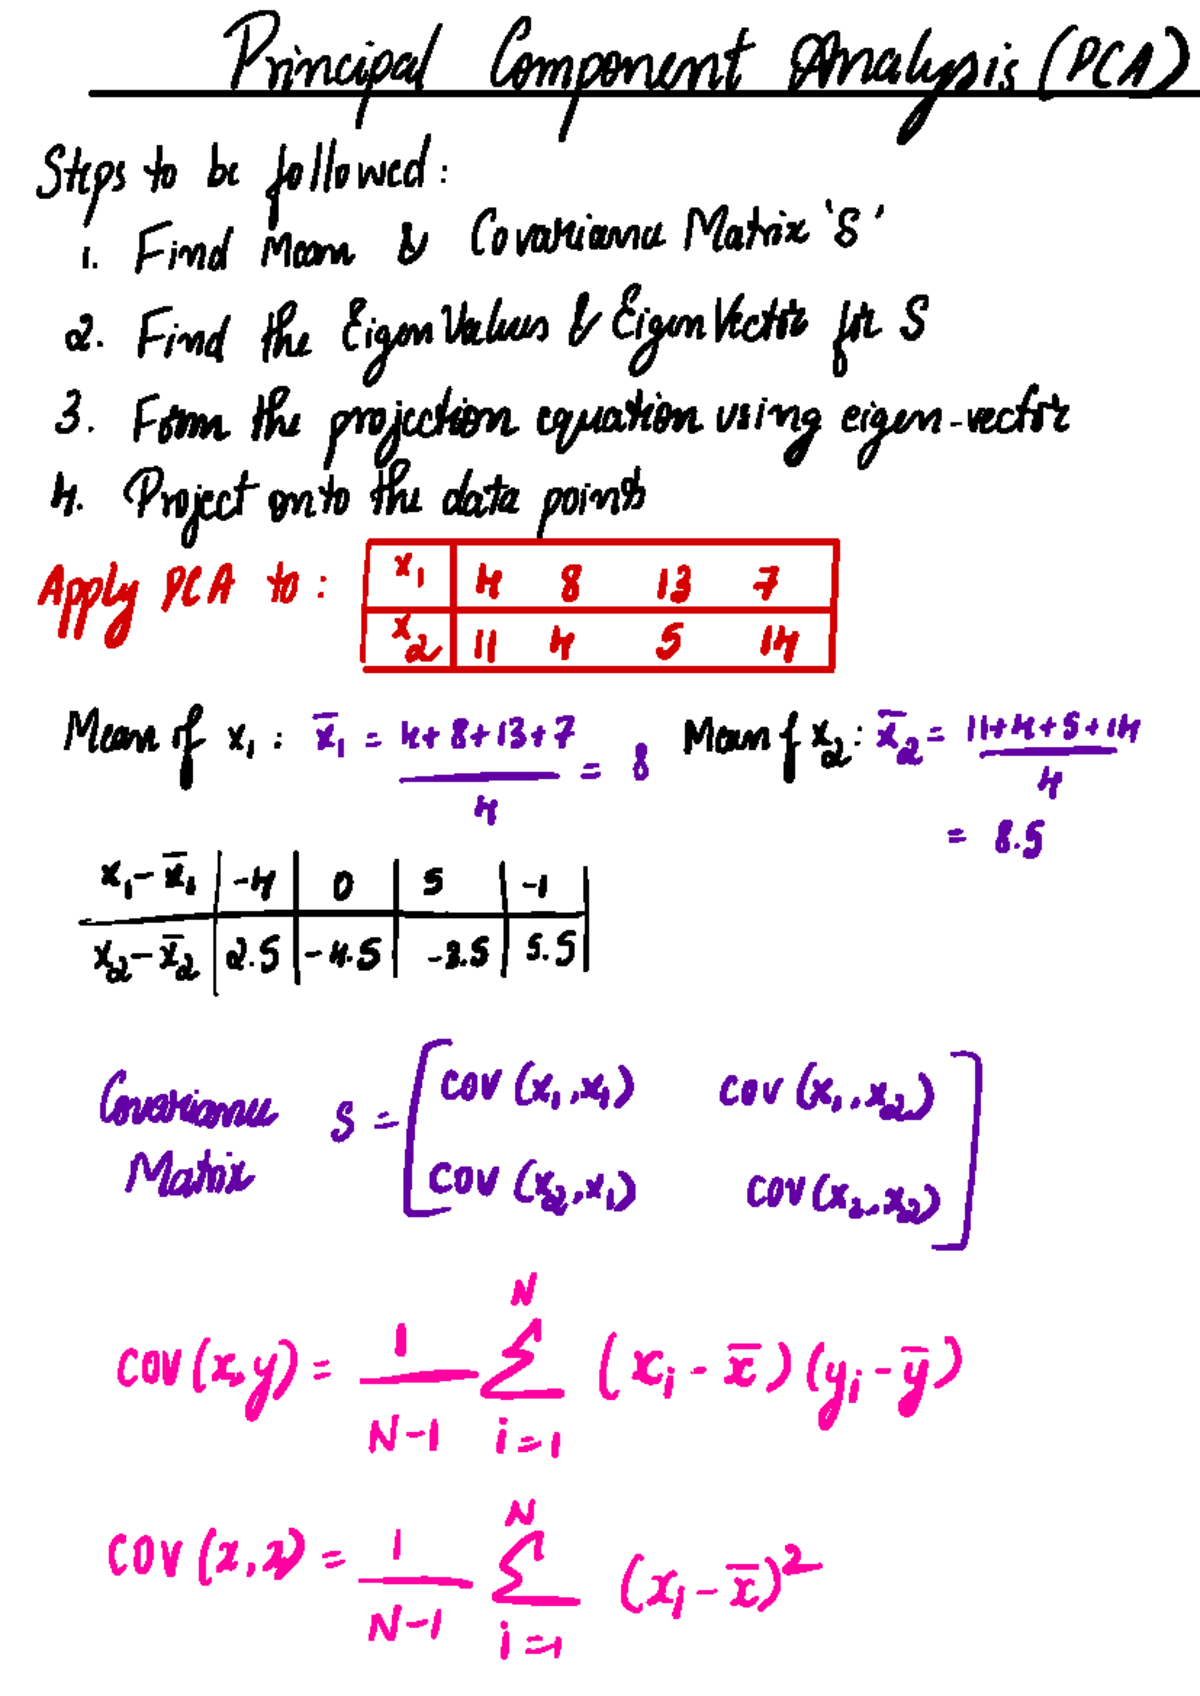 Principal Component Analysis (PCA)
Steps to be followed:
1. Find Mean & Covariance Matrix 'S'
2. Find the Eigen Values & Eigen Vector for S
3. Form the projection equation using eigen-vector
4. Project onto the data points
Apply PCA to:
x₁ 4 8 13 7
x₂ 11 4 5 14
Mean of x₁ : x̄₁ = (4+8+13+7)/4 = 8 Mean of x₂ : x̄₂ = (11+4+5+14)/4
= 8.5
x₁ - x̄₁ -4 0 5 -1
x₂ - x̄₂ 2.5 -4.5 -3.5 5.5
Covariance Matrix S = [cov (x₁, x₁) cov (x₁, x₂)
cov (x₂, x₁) cov (x₂, x₂)]
cov (x,y) = 1/(N-1) Σ_{i=1}^{N} (xᵢ - x̄) (yᵢ - ȳ)
cov (x,x) = 1/(N-1) Σ_{i=1}^{N} (xᵢ - x̄)²